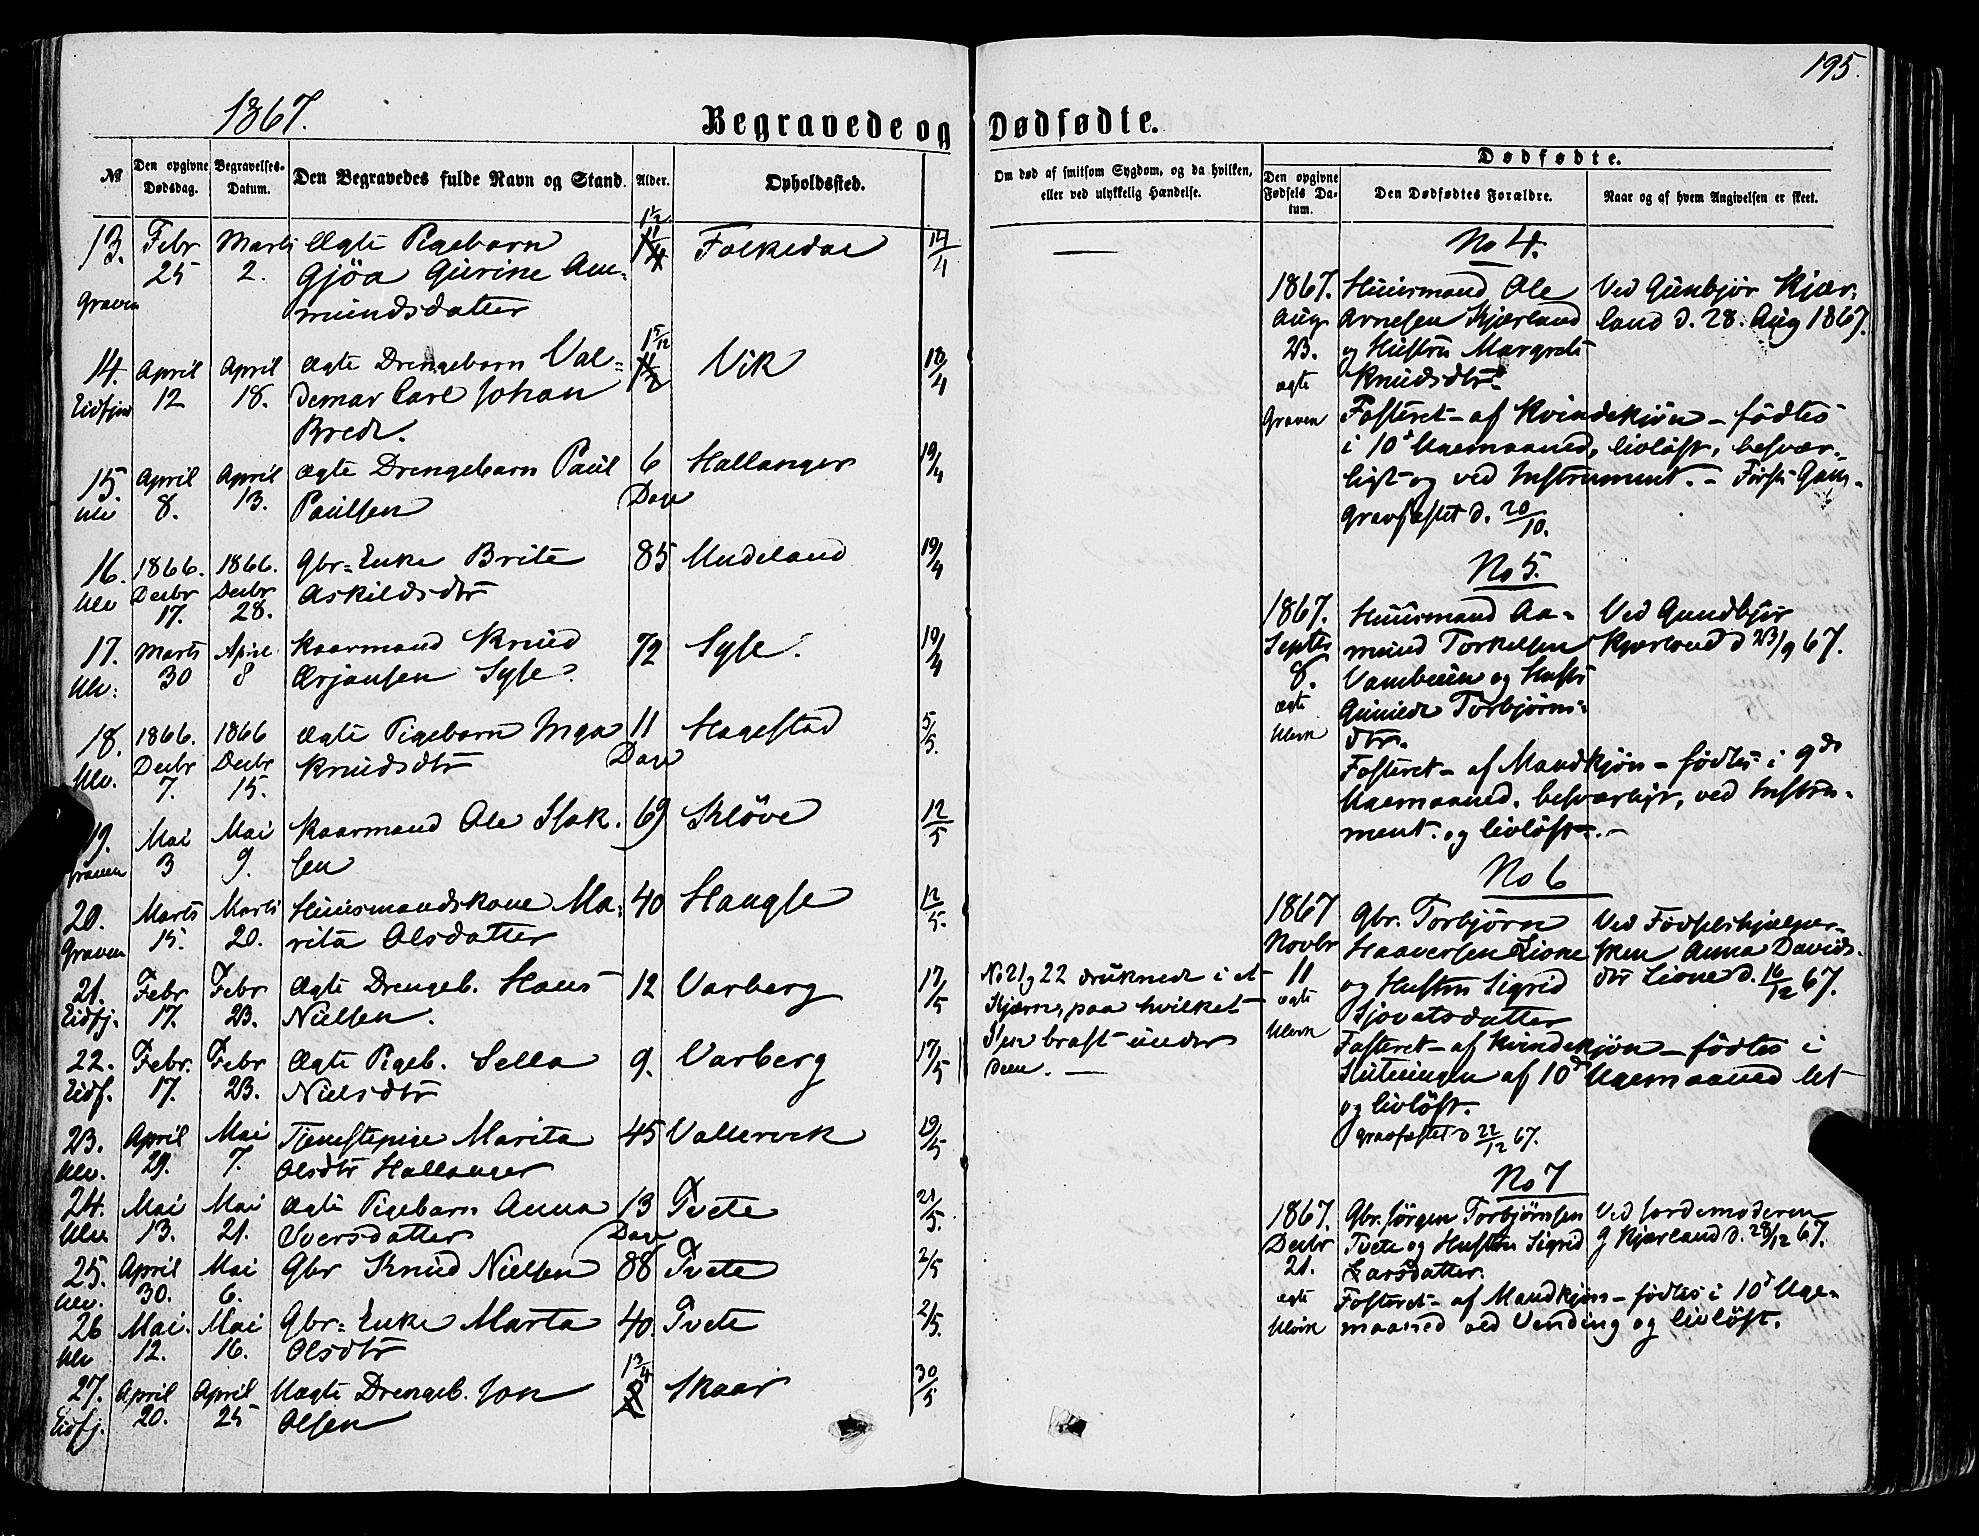 195.
1867.
Begravede og Dødfødte.
№
Den opgivne Dødsdag.
Begravelses-Datum.
Den Begravedes fulde Navn og Stand.
Alder.
Opholdssted.
Om død af smitsom Sygdom, og da hvilken, eller ved ulykkelig Hændelse.
Dødfødte.
Den opgivne Fødsels Datum.
Den Dødfødtes Forældre.
Naar og af hvem Angivelsen er skeet.
13. Febr Marts Ægte Pigebarn 1 1/2 Folkedal 14/4
25 2. Gjøa Gurine Am-
Graven mundsdatter
14. April April ægte Drengebarn Val- 1 5/12 Vik 18/4
Eidfjord 12 18. demar Carl Johan
Brede.
15. April April ægte Drengebarn Paul 6 Hallanger 19/4
Ulv 8. 13. Paulsen Dage
16. 1866. 1866. Gbr=Enke Brite 85 Undeland 19/4
Ulv Decbr Decbr Askildsdtr
17. 28.
17. Marts April Kaarmand Knud 72 Syse. 19/4
Ulv: 30 8 Ørjansen Syse.
18. 1866. 1866 ægte Pigebarn Inga 11 Hagestad 5/5.
Ulv. Decbr Decbr Knudsdtr Dage
7. 15.
19. Mai Mai Kaarmand Ole Isak- 69 Kløve 12/5
Graven 3 9. sen
20. Marts Marts Huusmandskone Ma- 40 Haugse 12/5.
Graven 15. 20. rita Olsdatter
21. Febr Febr ægte Drengeb. Hans 12 Varberg 17/5
Eidfj. 17. 23. Nielsen.
22. Febr. Febr Ægte Pigeb. Sella 9. Varberg 17/5
Eidf. 17. 23. Nielsdtr
23. April Mai Tjenestepige Marita 45 Vallervik 19/5
Ulv. 29. 7. Olsdtr Hallanger
24. Mai Mai ægte Pigebarn Anna 13 Tvete 21/5.
Ulv 13. 21. Iversdatter Dage
25. April Mai Gbr Knud Nielsen 88 Tvete 2/5
Ulv. 30. 6.
26 Mai. Mai Gbr=Enke Marta 40. Tvete 2/5.
Ulv 12. 16. Olsdtr
27. April April Uægte Drengeb. Jon 13/4 Skaar 30/5
Eidfj. 20. 25 Olsen
No 21 og 22 druknede i et
Kjærn, paa hvilket
Isen brast under
dem. —
No 4.
1867. Huusmand Ole Ved Gunbjør Kjær-
Aug Arnesen Kjærland land d. 28. Aug 1867.
23. og Hustru Margrete
ægte Knudsdtr
Graven Fosteret – af Kvindekjøn – fødtes
i 10d Ugemaaned, livløst, besvær-
ligt og ved Instrument. – Første Gang-
Gravfæstet d. 20/10.
No 5.
1867. Huusmand Aa- Ved Gundbjør
Septbr mund Torkelsen Kjærland d 23/9 67.
8. Vambeim og Hustr
ægte Gunild Torbjørns-
Ulvik dtr.
Fosteret – af Mandkjøn – fødtes i 9de
Ugemaaned, besværligt, ved Instru-
ment. og livløst. –
No 6
1867 Gbr. Torbjørn Ved Fødselshjælper-
Novbr Haaversen Lione sken Anna Davids-
11 og Hustru Sigrid dtr Lione d. 16/12 67.
ægte Sjovatsdatter
Ulvik
Fosteret – af Kvindekjøn – fødtes i
Slutningen af 10d Ugemaaned let
og livløst.
Gravfæstet d 22/12 67.
No 7
1867. Gbr. Jørgen Torbjørnsen Ved Jordemoderen
Decbr Tvete og Hustru Sigrid G Kjærland d. 28/12 67.
21. Larsdatter.
ægte Fosteret – af Mandkjøn – fødtes i 10d Uge-
Ulvik maaned ved Vending og livløst.